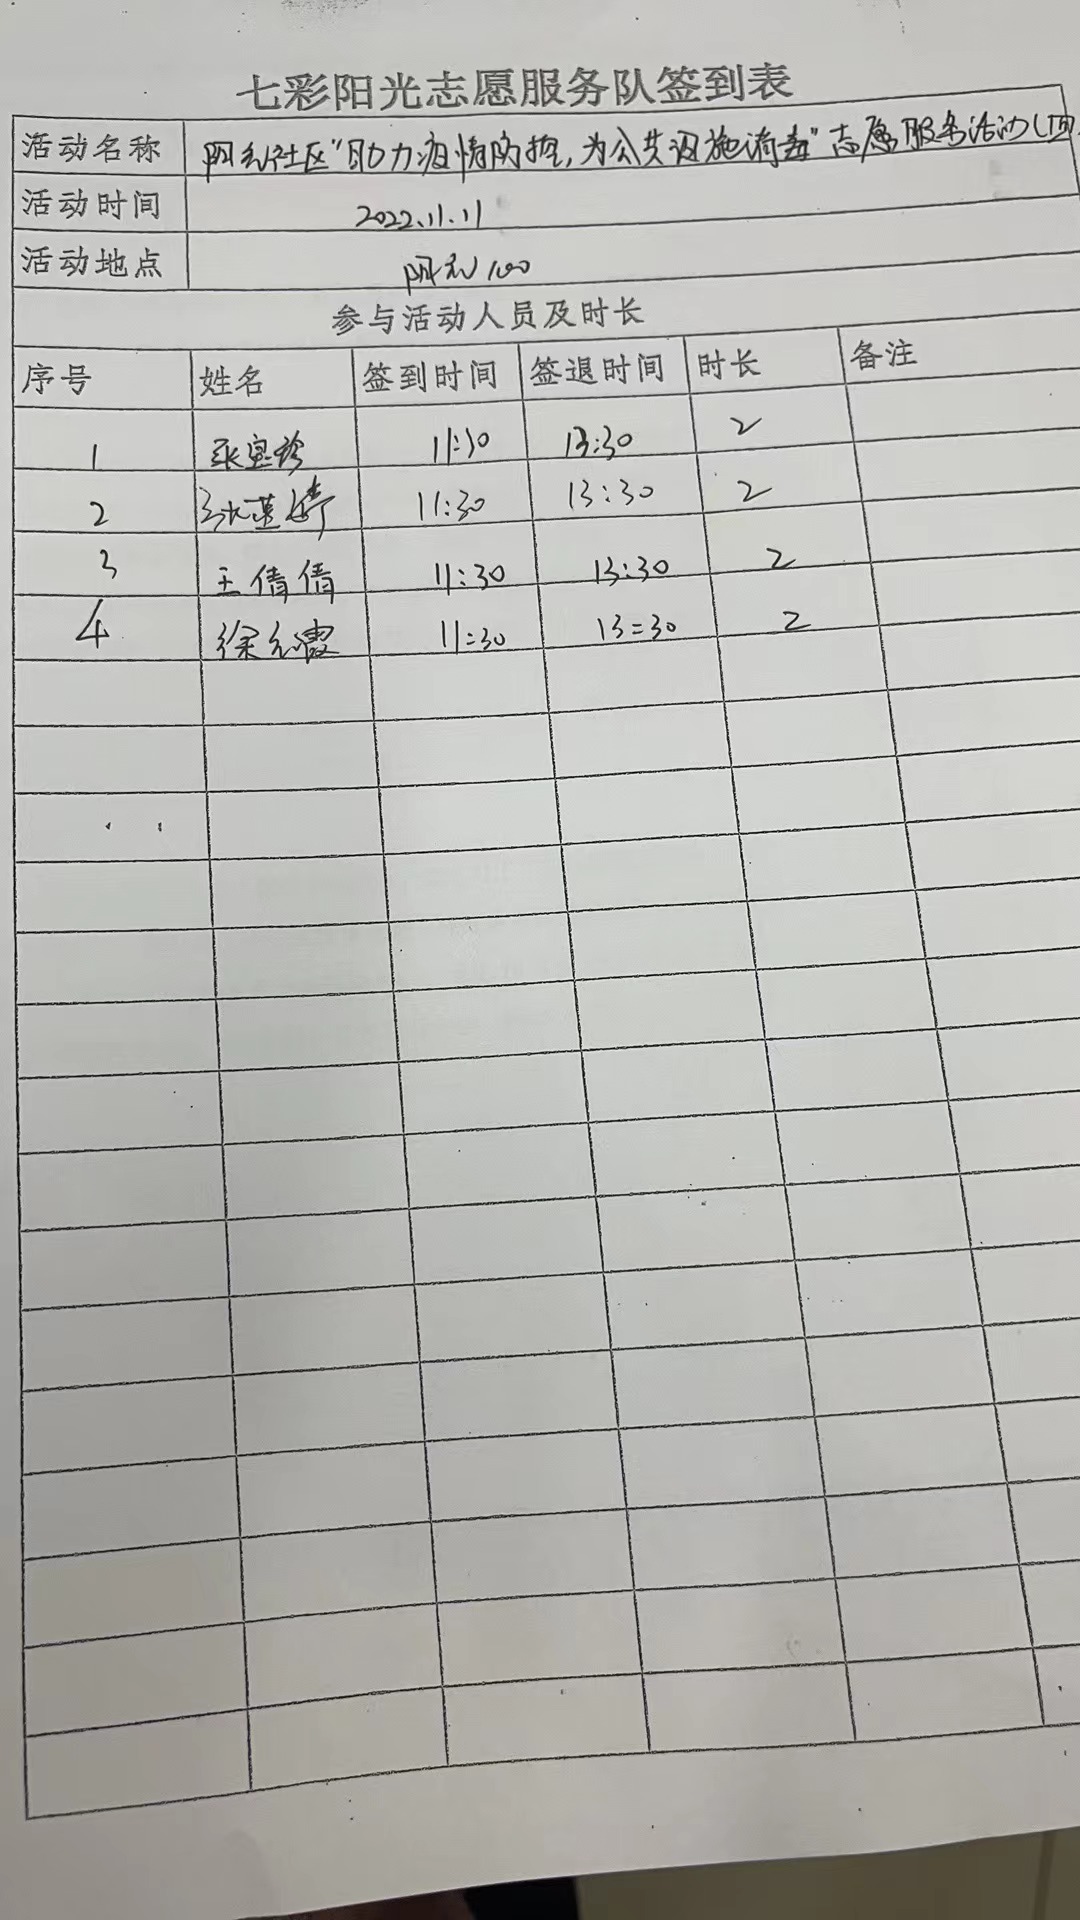 七彩阳光志愿服务队签到表
活动名称 社区“助力疫情防控,为公共设施消毒”志愿服务活动(
活动时间 2022.11.11
活动地点 100
参与活动人员及时长
序号 姓名 签到时间 签退时间 时长 备注
1 张宝珍 11:30 13:30 2
2 11:30 13:30 2
3 王倩倩 11:30 13:30 2
4 徐元霞 11:30 13:30 2